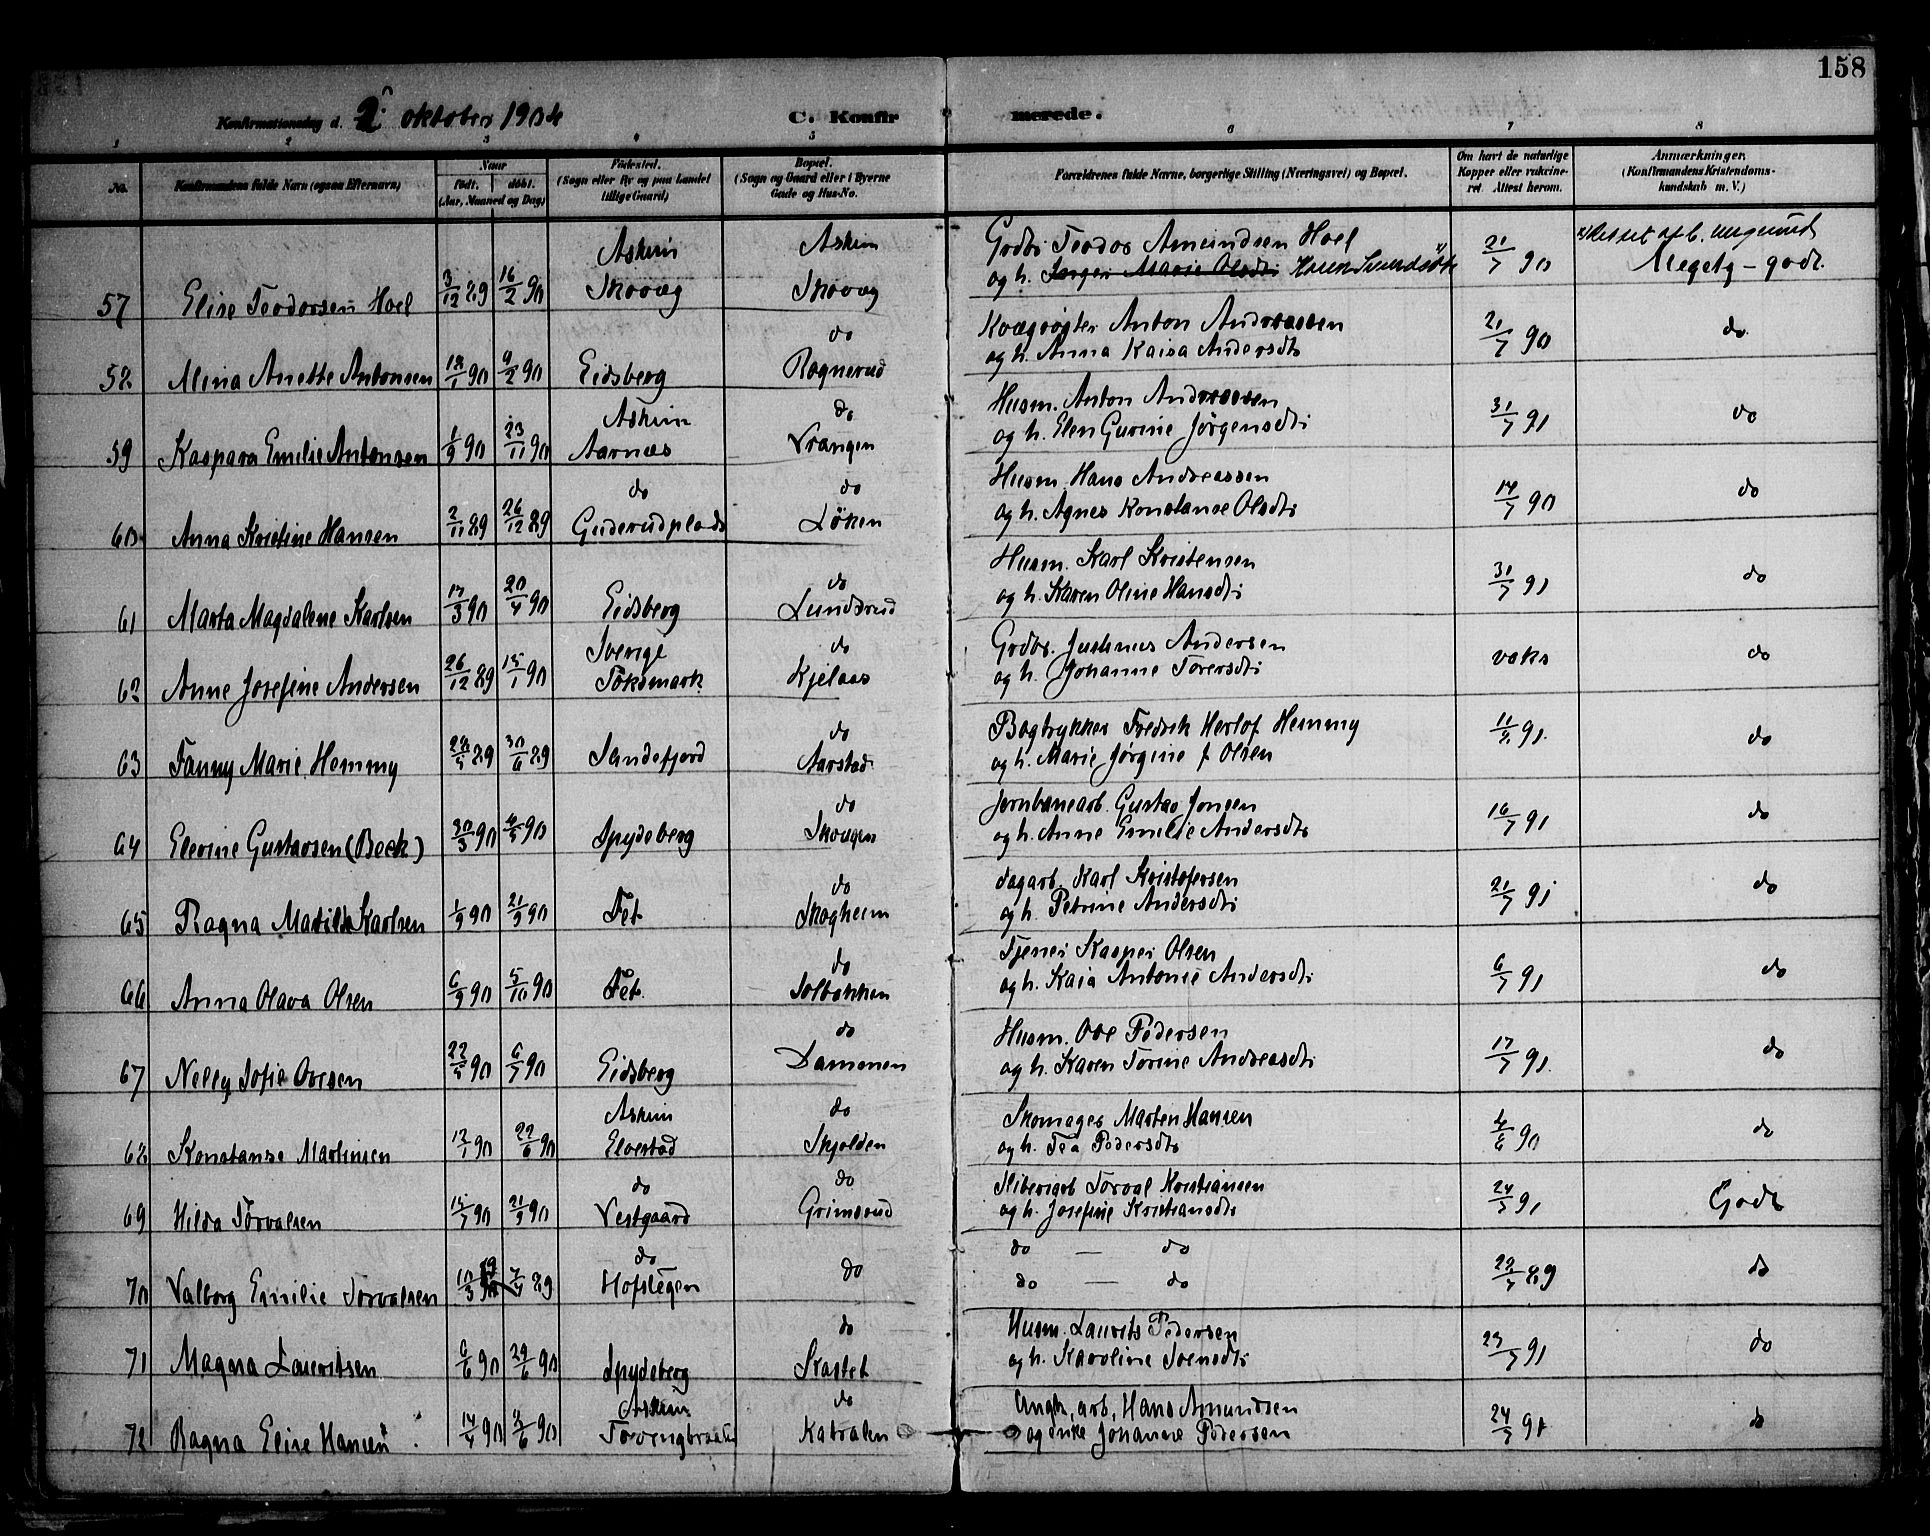 158
Konfirmationsdag d. 2 oktober 1904 C. Konfirmerede.
1 2 3 4 5 6 7 8
No. Konfirmandens fulde Navn (ogsaa Efternavn) Naar født. døbt. (Aar, Maaned og Dag) Fødested. (Sogn eller By og paa Landet tillige Gaard) Bopæl. (Sogn og Gaard eller i Byerne Gade og Hus-No. Forældrenes fulde Navne, borgerlige Stilling (Næringsvei) og Bopæl. Om havt de naturlige Kopper eller vakcineret. Attest herom. Anmærkninger. (Konfirmandens Kristendomskundskab m. V.)
Askim Askim Grdbr. Teodor Amundsen Hoel
57 Elise Teodorsen Hoel 3/12 89 16/2 90 Skovæg Skovæg og h. Jørgen Marie Olsdtr 21/7 90 Megetg - godt.
do Kvægrøgter Anton Andreassen
58 Alina Anette Antonsen 18/1 90 9/2 90 Eidsberg Rognerud og h. Anna Kaisa Andersdtr 21/7 90 do
Askim do Husm. Anton Andreassen
59 Kaspara Emilie Antonsen 1/9 90 23/11 90 Aarnæs Vrangen og h. Elen Gurine Jørgensdtr 31/7 91 do
do do Husm. Hans Andreassen
60 Anna Kristine Hansen 2/11 89 26/12 89 Guderudplads Løken og h. Agnes Konstanse Olsdtr 14/7 90 do
do Husm. Karl Kristensen
61 Marta Magdalene Karlsen 17/3 90 20/4 90 Eidsberg Lundsrud og h. Karen Oline Hansdtr 31/7 91 do
Sverige do Grdbr. Justinus Andersen
62 Anne Josefine Andersen 26/12 89 15/1 90 Töksmark Kjelaas og h. Johanne Torersdtr vaks do
do Bogtrykker Fredrik Herlof Hemmy
63 Fanny Marie Hemmy 28/4 89 30/6 89 Sandefjord Aarstad og h. Marie Jørgine f Olsen 11/8 91. do
do Jernbanearb. Gustav Jonsen
64 Elevine Gustavsen (Beck) 30/3 90 4/5 90 Spydeberg Skougen og h. Anne Emilie Andersdtr 16/7 91 do
do dagarb. Karl Kristofersen
65 Ragna Matilde Karlsen 1/9 90 21/9 90 Fet Skogheim og h. Petrine Andersdtr 21/7 91 do
do Tjener Kasper Olsen
66 Anna Olava Olsen 6/9 90 5/10 90 Fet. Solbakken og h. Kaia Antonie Andersdtr 6/7 91 do
do Husm. Ove Pedersen
67 Nelly Sofie Ovesen 22/5 90 6/7 90 Eidsberg Dammen og h. Karen Torine Andreasdtr 17/7 91. do
Askim do Skomager Marten Hansen
68 Konstanse Martinsen 13/1 90 22/6 90 Elvestad Skjolden og h. Tea Pedersdtr 4/6 90 do
do do Sliberiarb Torval Kristiansen
69 Hilda Torvalsen 15/7 90 21/9 90 Vestgaard Grimsrud og h. Josefine Kristiansdtr 24/7 91 Godt
do do — do
70 Valborg Emilie Torvalsen 10/3 7/4 89 Hofslegen do do — do 22/7 89 do
do Husm. Laurits Pedersen
71 Magna Lauritsen 6/6 90 29/6 90 Spydeberg Skastet og h. Karoline Svensdtr 23/7 91 do
Askim do arb. Hans Amundsen
72 Ragna Elise Hansen 14/4 90 Kabralen og enke Johanne Pedersen 24/7 91 do